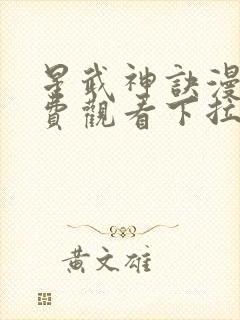 星武神訣漫
費觀看下拉
黃文雄